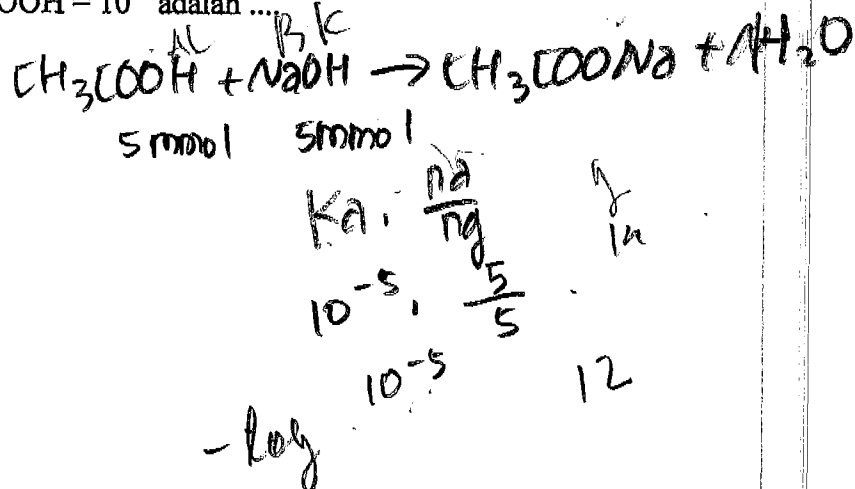 OOH = 10 adalah ....
AL B K
CH₃COOH + NaOH → CH₃COONa + H₂O
5 mmol 5 mmol
Ka . na/ng
10⁻⁵ . 5/5
10⁻⁵ 12
- log